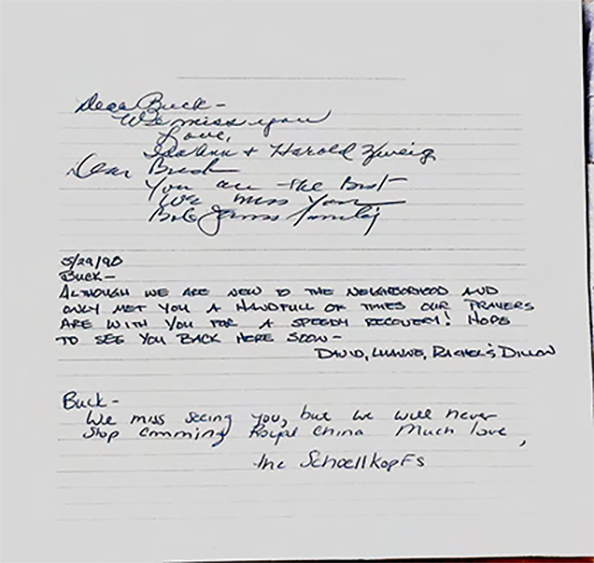 Dear Buck -
We miss you
Love,
LeeAnn + Harold Zweig
Dear Buck
You are the Best
We Miss You
Bob James Family
5/29/90
BUCK-
ALTHOUGH WE ARE NEW TO THE NEIGHBORHOOD AND
ONLY MET YOU A HANDFULL OF TIMES OUR PRAYERS
ARE WITH YOU FOR A SPEEDY RECOVERY! HOPE
TO SEE YOU BACK HERE SOON-
DAVID, LUANNE, RACHEL & DILLON
Buck -
We miss seeing you, but we will never
stop comming Royal China Much love,
the Schoellkopfs